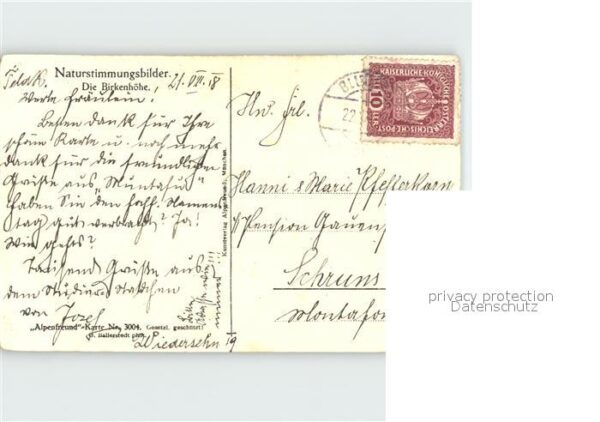 Naturstimmungsbilder.
Die Birkenhöhe.
21. VIII. 18
Werte Fräulein!
Besten Dank für Ihre
schöne Karte u. noch mehr
Dank für die freundlichen
Grüße aus "Muntafun"
Haben Sie den hoh. Namens-
tag gut verbracht? Ja!
Wie gehts?
Tausend Grüße aus
dem Studier
von Josef
Wiedersehn
"Alpenfreund"-Karte No. 3004. Gesetzl. geschützt!
Kunstverlag Alpenfreund, München
KAISERLICHE KÖNIGLICHE
ÖSTERREICHISCHE POST
10
HELLER
22
Frl.
Hanni & Marie Pfefferkorn
Pension Gauen
Schruns
Montafon
privacy protection
Datenschutz